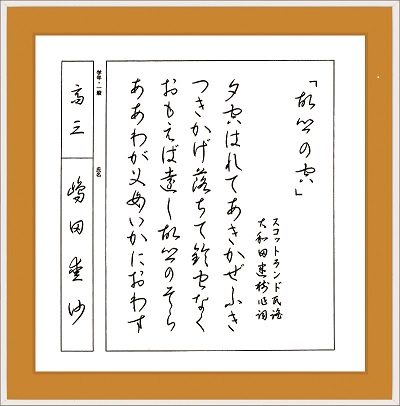 「故郷の空」
スコットランド民謡
大和田建樹作詞
夕空はれてあきかぜふき
つきかげ落ちて鈴虫なく
おもえば遠し故郷のそら
ああわが父母いかにおわす
学年・一般
高三
氏名
嶋田 愛沙